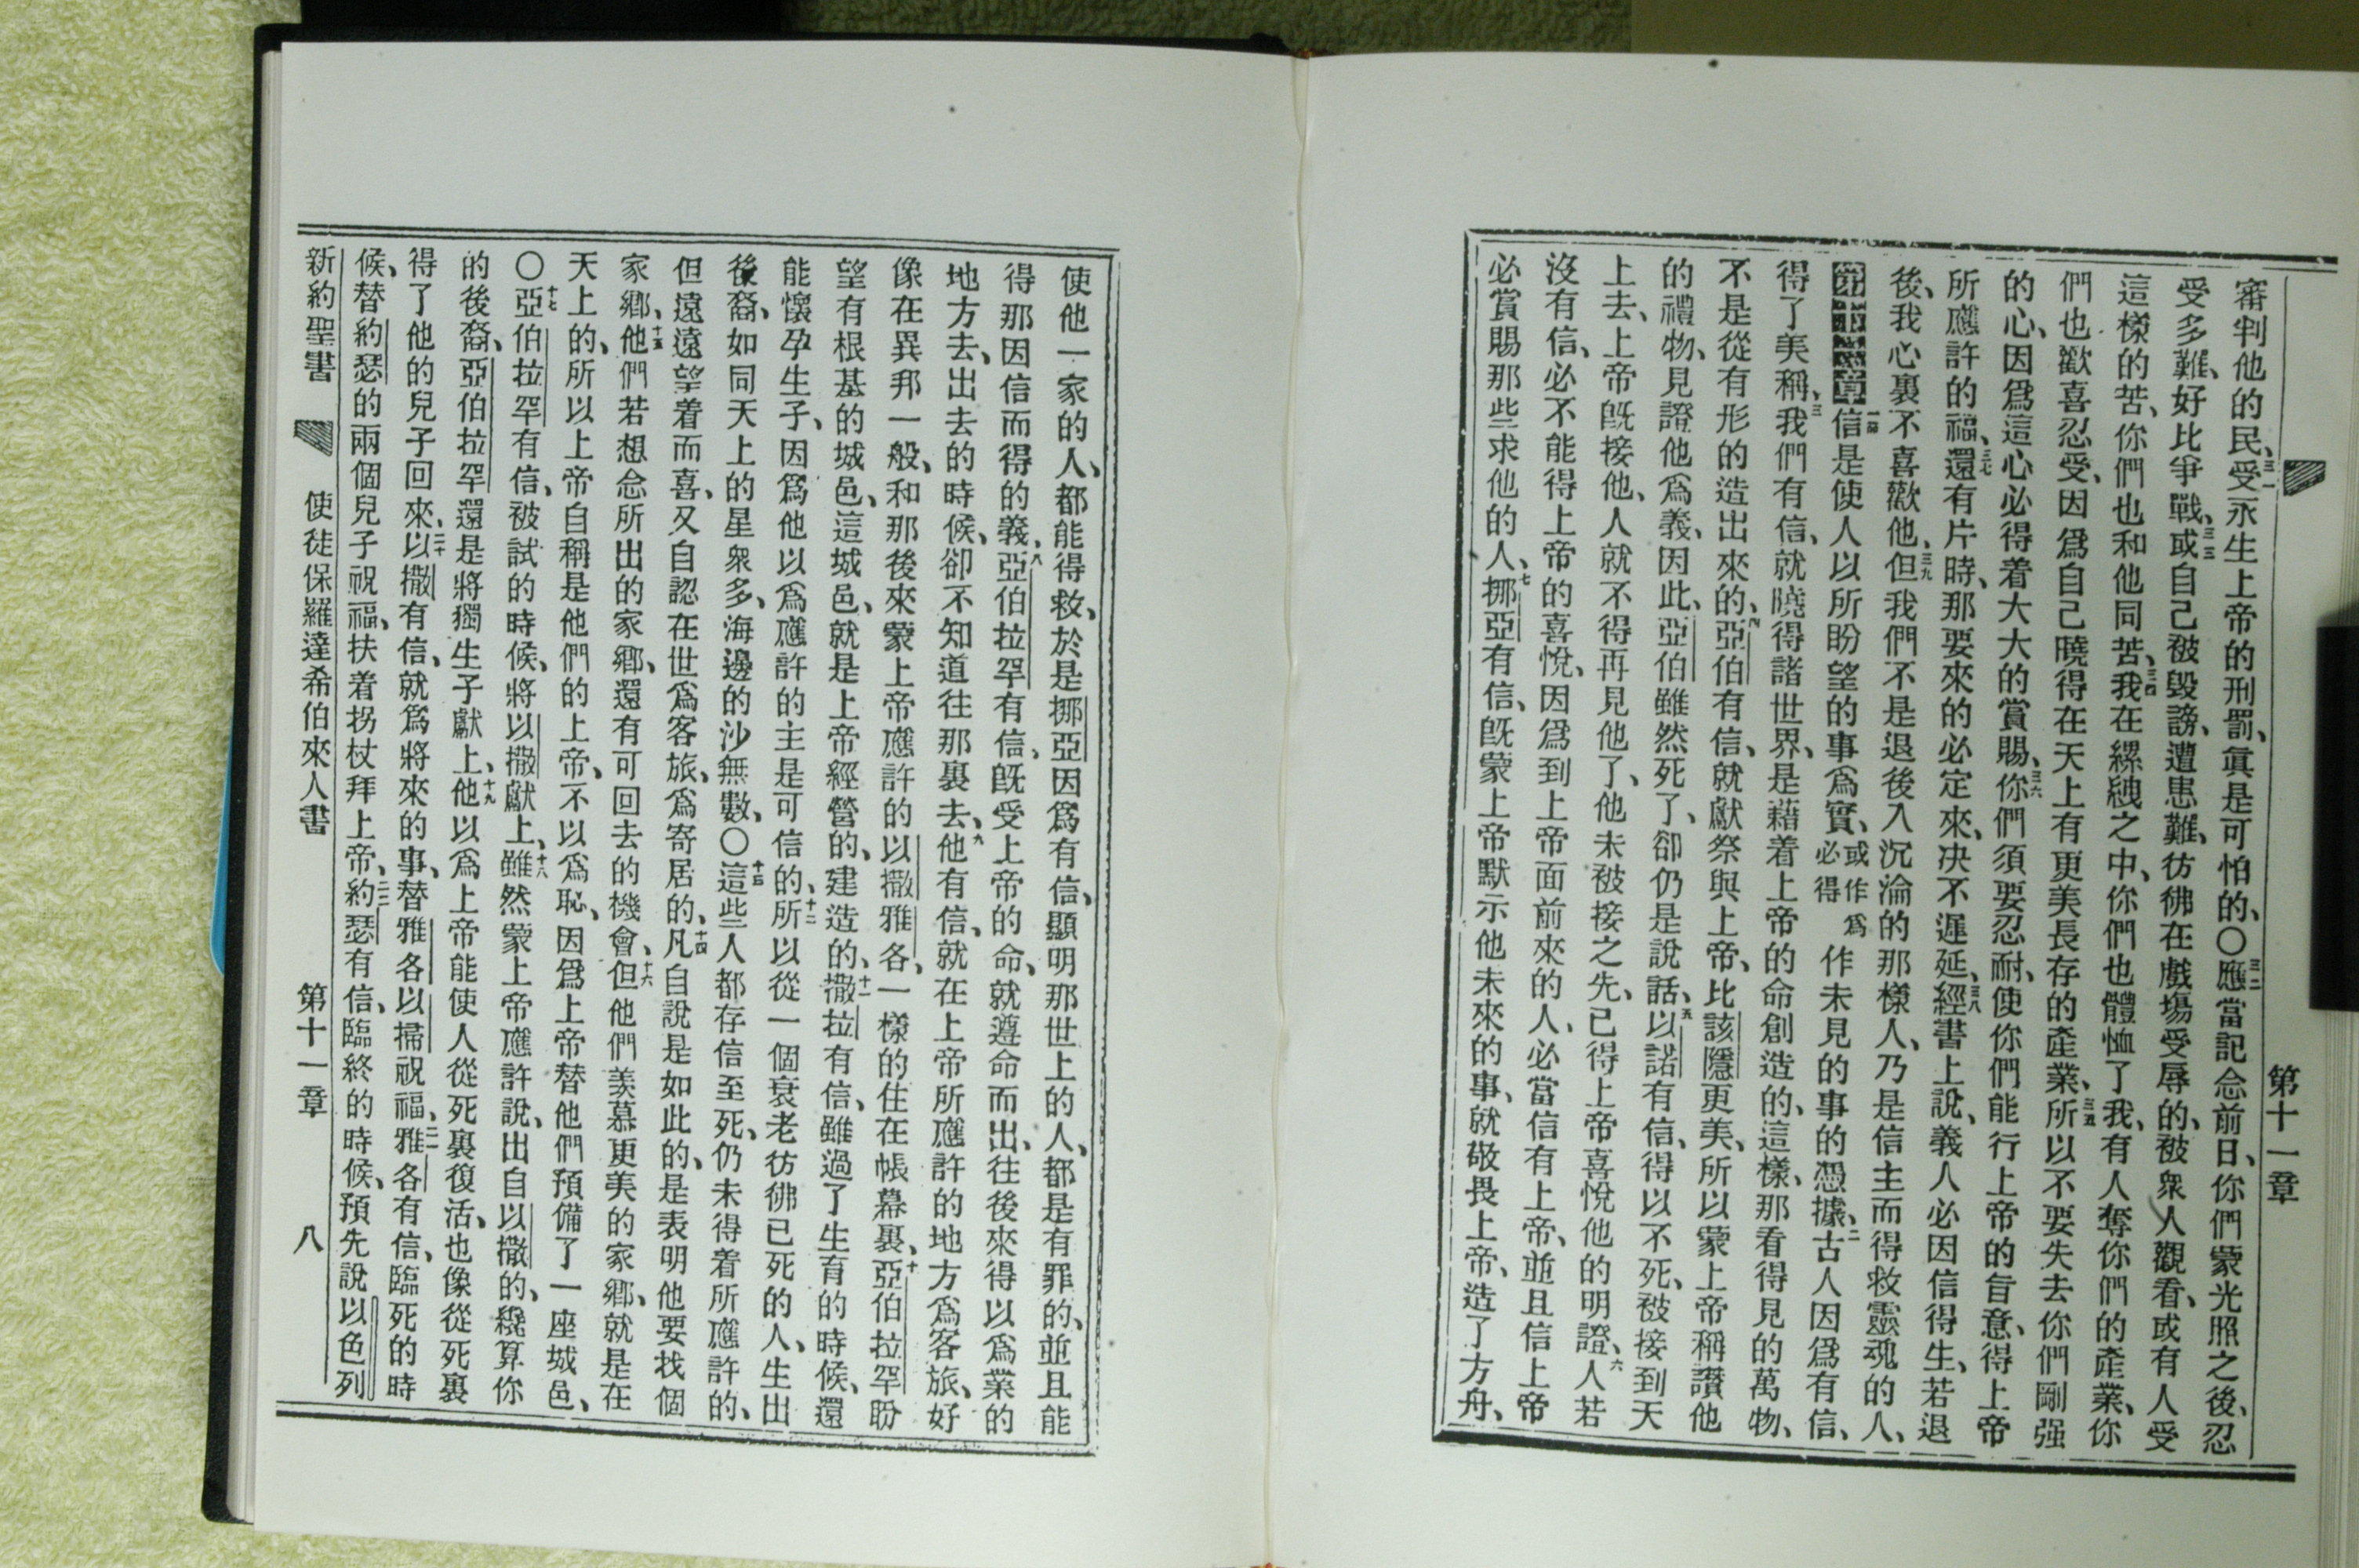 第十一章
審判他的民、三一受永生上帝的刑罰、眞是可怕的、〇三二應當記念前日、你們蒙光照之後、忍
受多難、好比爭戰、三三或自己被毀謗、遭患難、彷彿在戲塲受辱的、被衆人觀看、或有人受
這樣的苦、你們也和他同苦、三四我在縲絏之中、你們也體恤了我、有人奪你們的產業、你
們也歡喜忍受、因爲自己曉得在天上有更美長存的產業、三五所以不要失去你們剛强
的心、因爲這心必得着大大的賞賜、三六你們須要忍耐、使你們能行上帝的旨意、得上帝
所應許的福、三七還有片時、那要來的必定來、决不遲延、三八經書上說、義人必因信得生、若退
後、我心裏不喜歡他、三九但我們不是退後入沉淪的那樣人、乃是信主而得救靈魂的人、
第十一章一信是使人以所盼望的事爲實、或作爲必得作未見的事的憑據、二古人因爲有信、
得了美稱、三我們有信、就曉得諸世界、是藉着上帝的命創造的、這樣、那看得見的萬物、
不是從有形的造出來的、四亞伯有信、就獻祭與上帝、比該隱更美、所以蒙上帝稱讚他
的禮物、見證他爲義、因此、亞伯雖然死了、卻仍是說話、五以諾有信、得以不死、被接到天
上去、上帝旣接他、人就不得再見他了、他未被接之先、已得上帝喜悅他的明證、六人若
沒有信、必不能得上帝的喜悅、因爲到上帝面前來的人、必當信有上帝、並且信上帝
必賞賜那些求他的人、七挪亞有信、旣蒙上帝默示他未來的事、就敬畏上帝、造了方舟、
使他一家的人、都能得救、於是挪亞因爲有信、顯明那世上的人、都是有罪的、並且能
得那因信而得的義、八亞伯拉罕有信、旣受上帝的命、就遵命而出、往後來得以爲業的
地方去、出去的時候、卻不知道往那裏去、九他有信、就在上帝所應許的地方爲客旅、好
像在異邦一般、和那後來蒙上帝應許的以撒雅各、一樣的住在帳幕裏、十亞伯拉罕盼
望有根基的城邑、這城邑、就是上帝經營的、建造的、十一撒拉有信、雖過了生育的時候、還
能懷孕生子、因爲他以爲應許的主是可信的、十二所以從一個衰老彷彿已死的人、生出
後裔、如同天上的星衆多、海邊的沙無數、〇十三這些人都存信至死、仍未得着所應許的、
但遠遠望着而喜、又自認在世爲客旅、爲寄居的、十四凡自說是如此的、是表明他要找個
家鄉、十五他們若想念所出的家鄉、還有可回去的機會、十六但他們羨慕更美的家鄉、就是在
天上的、所以上帝自稱是他們的上帝、不以爲恥、因爲上帝替他們預備了一座城邑、
〇十七亞伯拉罕有信、被試的時候、將以撒獻上、十八雖然蒙上帝應許說、出自以撒的、纔算你
的後裔、亞伯拉罕還是將獨生子獻上、十九他以爲上帝能使人從死裏復活、也像從死裏
得了他的兒子回來、二十以撒有信、就爲將來的事、替雅各以掃祝福、二一雅各有信、臨死的時
候、替約瑟的兩個兒子祝福、扶着拐杖拜上帝、二二約瑟有信、臨終的時候、預先說以色列
新約聖書 使徒保羅達希伯來人書 第十一章 八